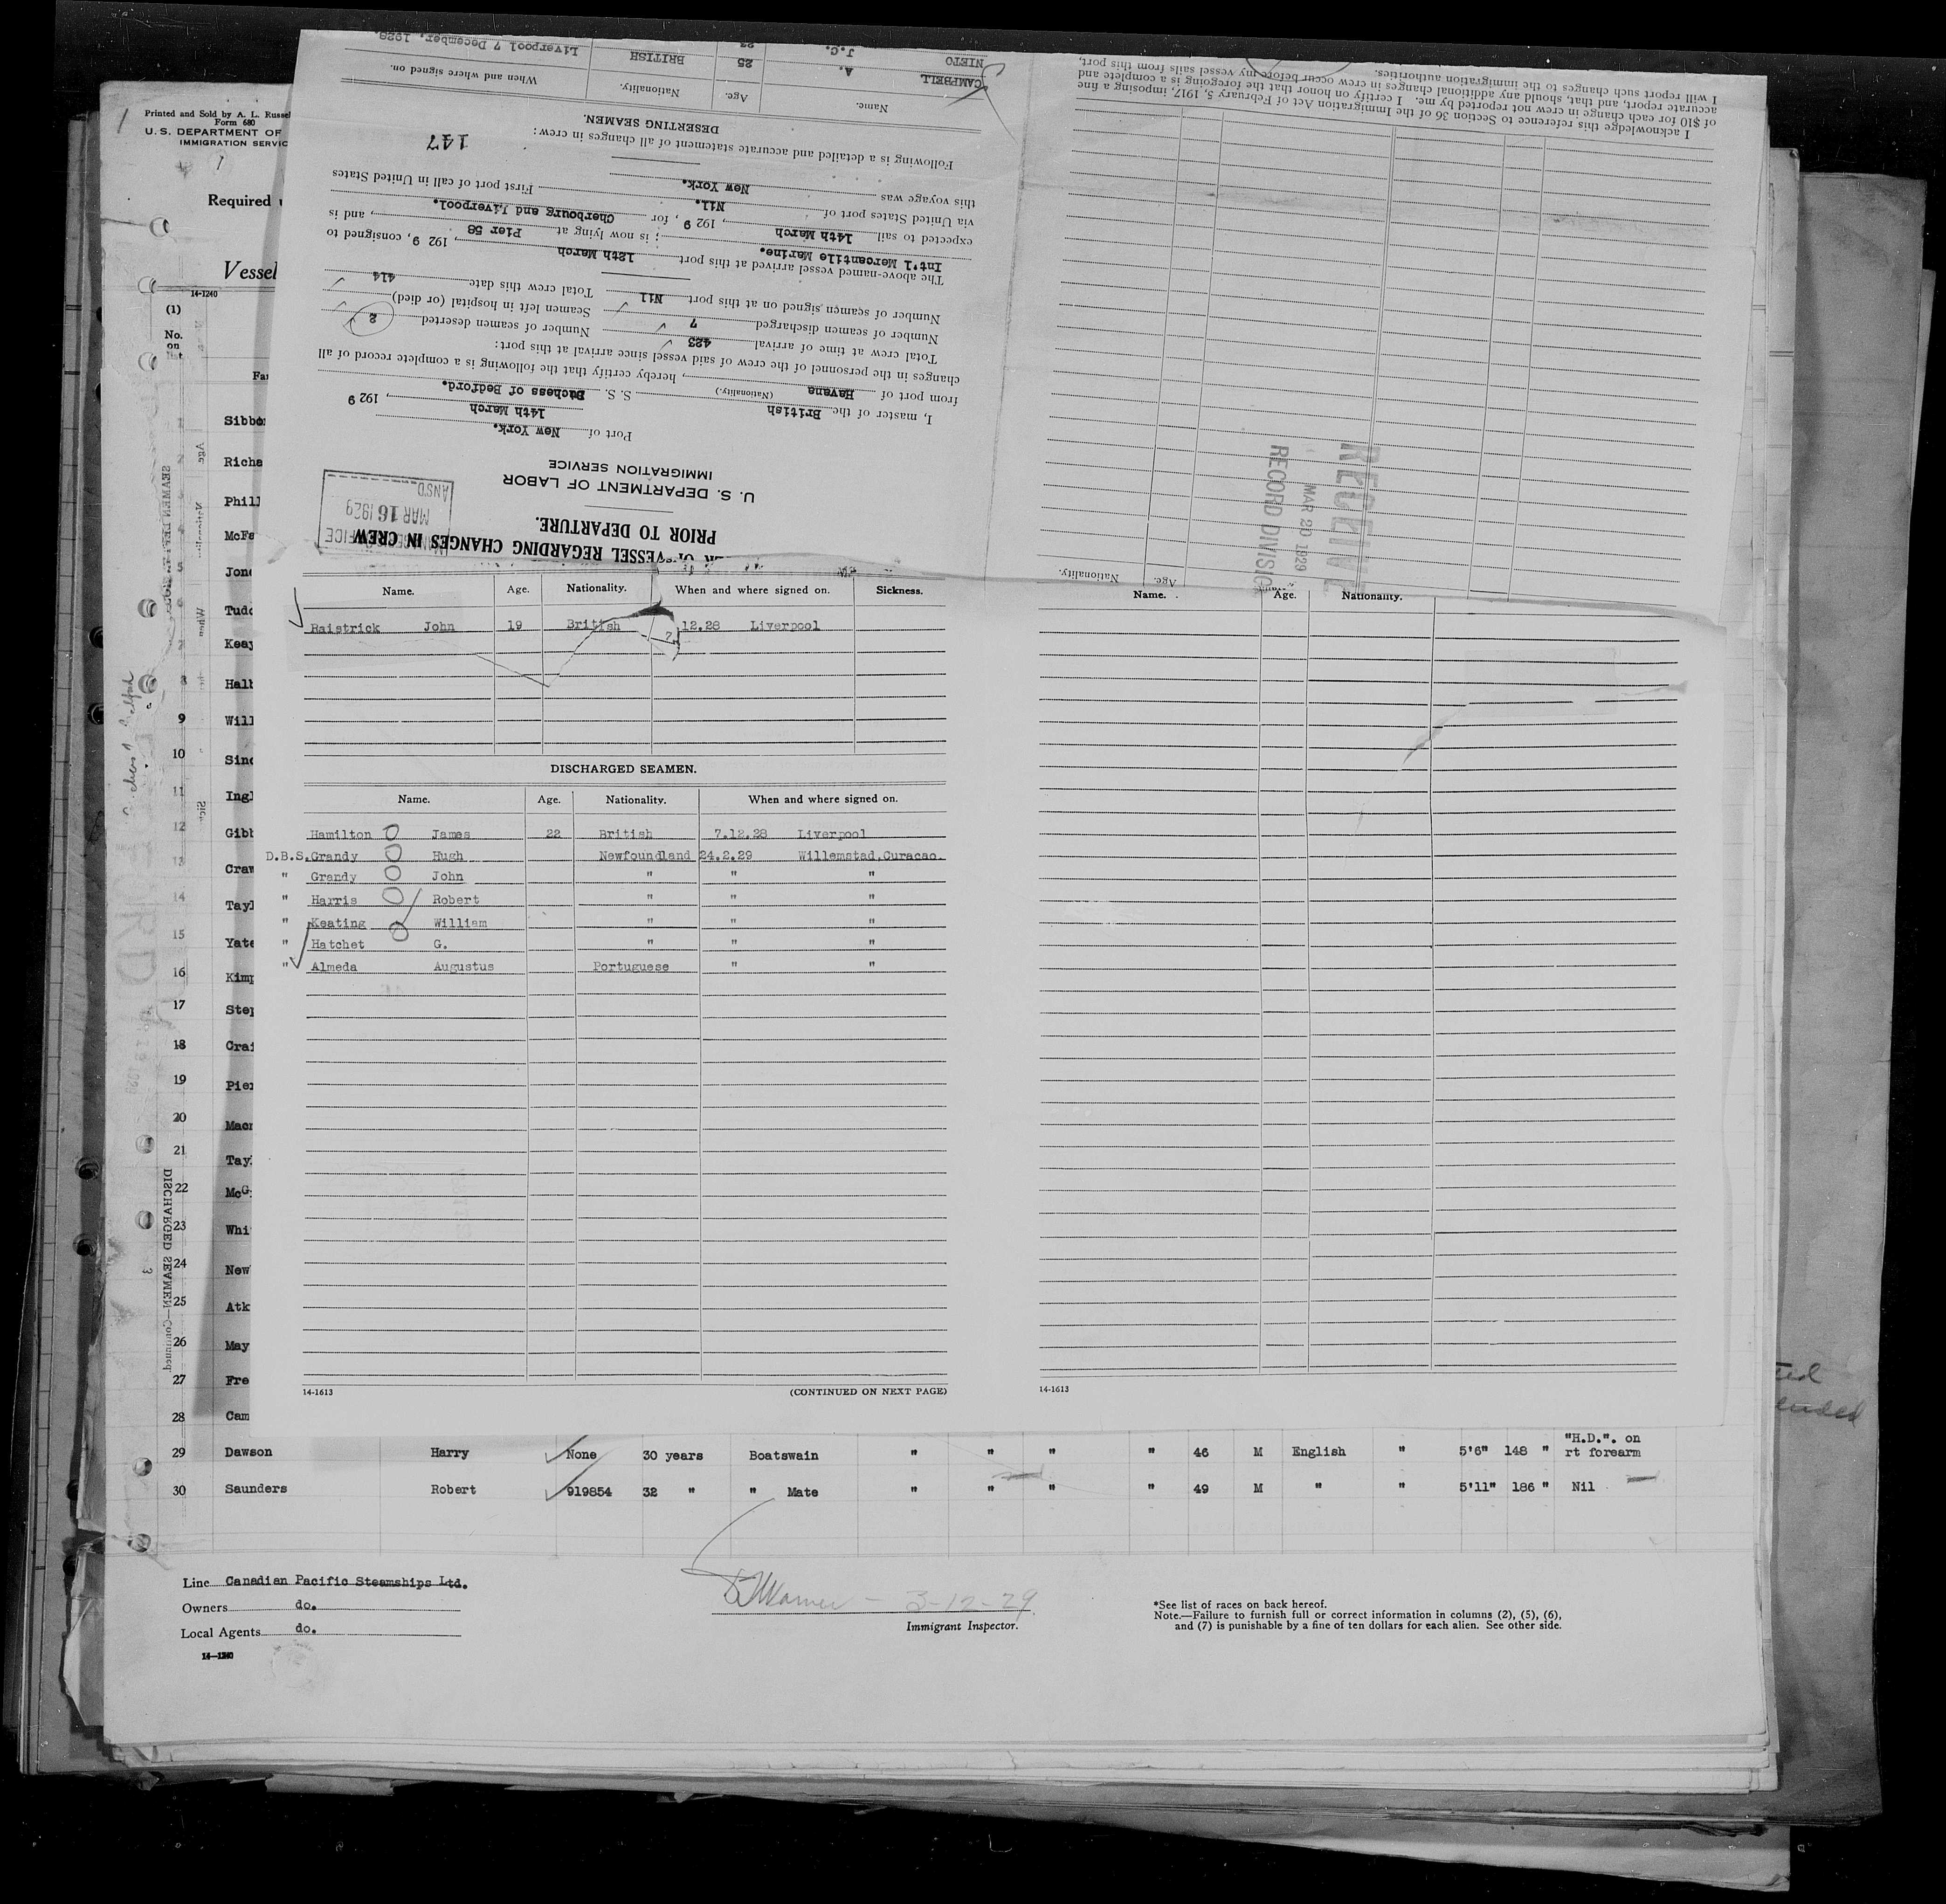 Printed and Sold by A. L. Russel
Form 680
U.S. DEPARTMENT OF
IMMIGRATION SERVIC
Required
Vessel
14-1240
(1)
No.
on
list
Sibbo
Richa
Phill
McFa
Jone
Tudo
Keay
Halb
9 Will
10 Sinc
11 Ingl
12 Gibb
13 Craw
14 Tayl
15 Yate
16 Kimp
17 Step
18 Crai
19 Pier
20 Macr
21 Tay
22 McG
23 Whi
24 New
25 Atk
26 May
27 Fre
28 Cam
29 Dawson Harry None 30 years Boatswain " " " " 46 M English " 5'6" 148 " "H.D.". on rt forearm
30 Saunders Robert 919854 32 " " Mate " " " " 49 M " " 5'11" 186 " Nil
Line Canadian Pacific Steamships Ltd.
Owners do.
Local Agents do.
14-1240
3-12-29
Immigrant Inspector.
*See list of races on back hereof.
Note.—Failure to furnish full or correct information in columns (2), (5), (6),
and (7) is punishable by a fine of ten dollars for each alien. See other side.
VESSEL REGARDING CHANGES IN CREW
PRIOR TO DEPARTURE.
U. S. DEPARTMENT OF LABOR
IMMIGRATION SERVICE
MAR 16 1929
ANSD
Port of New York.
14th March, 192 9
I, master of the British (Nationality.) S. S. Duchess of Bedford.
from port of Havana, hereby certify that the following is a complete record of all
changes in the personnel of the crew of said vessel since arrival at this port:
Total crew at time of arrival 423
Number of seamen deserted 2
Number of seamen discharged 7
Seamen left in hospital (or died)
Number of seamen signed on at this port Nil
Total crew this date 414
The above-named vessel arrived at this port 12th March, 192 9, consigned to
Int'l Mercantile Marine.; is now lying at Pier 58, and is
expected to sail 14th March, 192 9, for Cherbourg and Liverpool.
via United States port of Nil. First port of call in United States
this voyage was New York.
Following is a detailed and accurate statement of all changes in crew:
147
DESERTING SEAMEN.
Name. Age. Nationality. When and where signed on.
CAMPBELL A. 25 BRITISH Liverpool 7 December, 1928.
NIETO J.C. 23
Name. Age. Nationality. When and where signed on. Sickness.
Raistrick John 19 British 12.28 Liverpool
DISCHARGED SEAMEN.
Name. Age. Nationality. When and where signed on.
Hamilton James 22 British 7.12.28 Liverpool
D.B.S. Grandy Hugh Newfoundland 24.2.29 Willemstad.Curacao.
" Grandy John " " "
" Harris Robert " " "
" Keating William " " "
" Hatchet G. " " "
" Almeda Augustus Portuguese " "
14-1613
(CONTINUED ON NEXT PAGE)
Age. Nationality.
RECORD DIVISIO
MAR 20 1929
RECEIVE
I acknowledge this reference to Section 36 of the Immigration Act of February 5, 1917, imposing a fine
of $10 for each change in crew not reported by me. I certify on honor that the foregoing is a complete and
accurate report, and that, should any additional changes in crew occur before my vessel sails from this port,
I will report such changes to the immigration authorities.
Name. Age. Nationality.
14-1613
DISCHARGED SEAMEN—Continued.